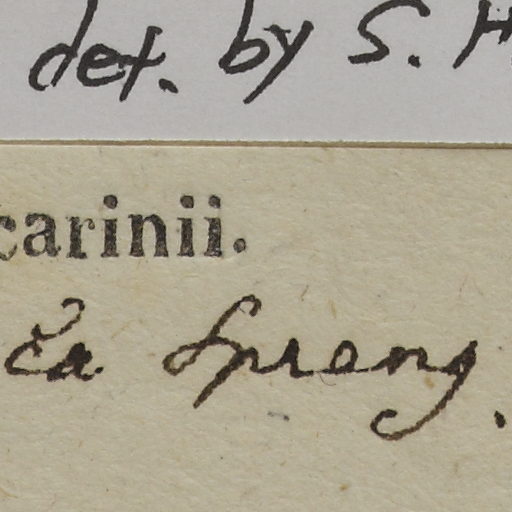 det. by S. H
carinii.
ca Spreng.